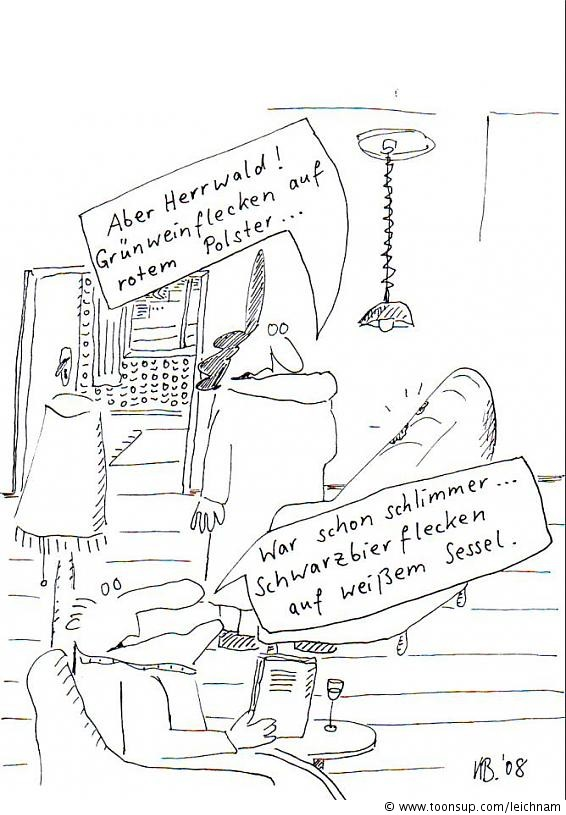 Aber Herrwald!
Grünweinflecken auf
rotem Polster...
War schon schlimmer...
Schwarzbierflecken
auf weißem Sessel.
KB. '08
© www.toonsup.com/leichnam